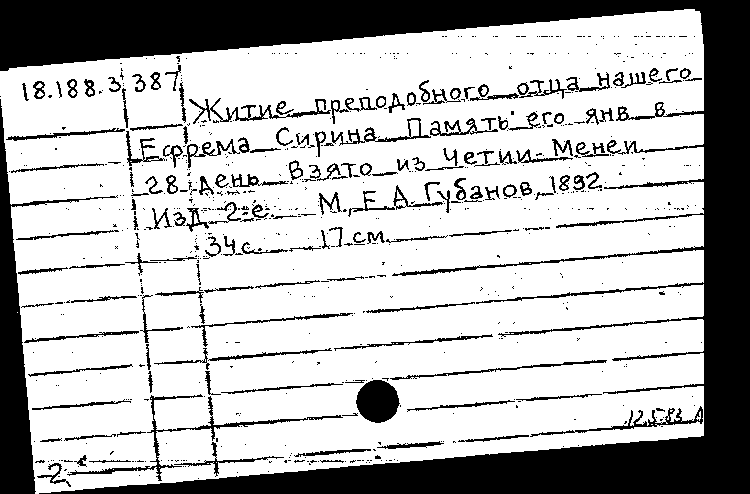 18.188.3.387
Житие преподобного отца нашего
Ефрема Сирина Память его янв в
28 день Взято из Четии-Менеи
Изд 2-е. М., Е.А. Губанов, 1892
34с. 17 см.
12.5.83
2